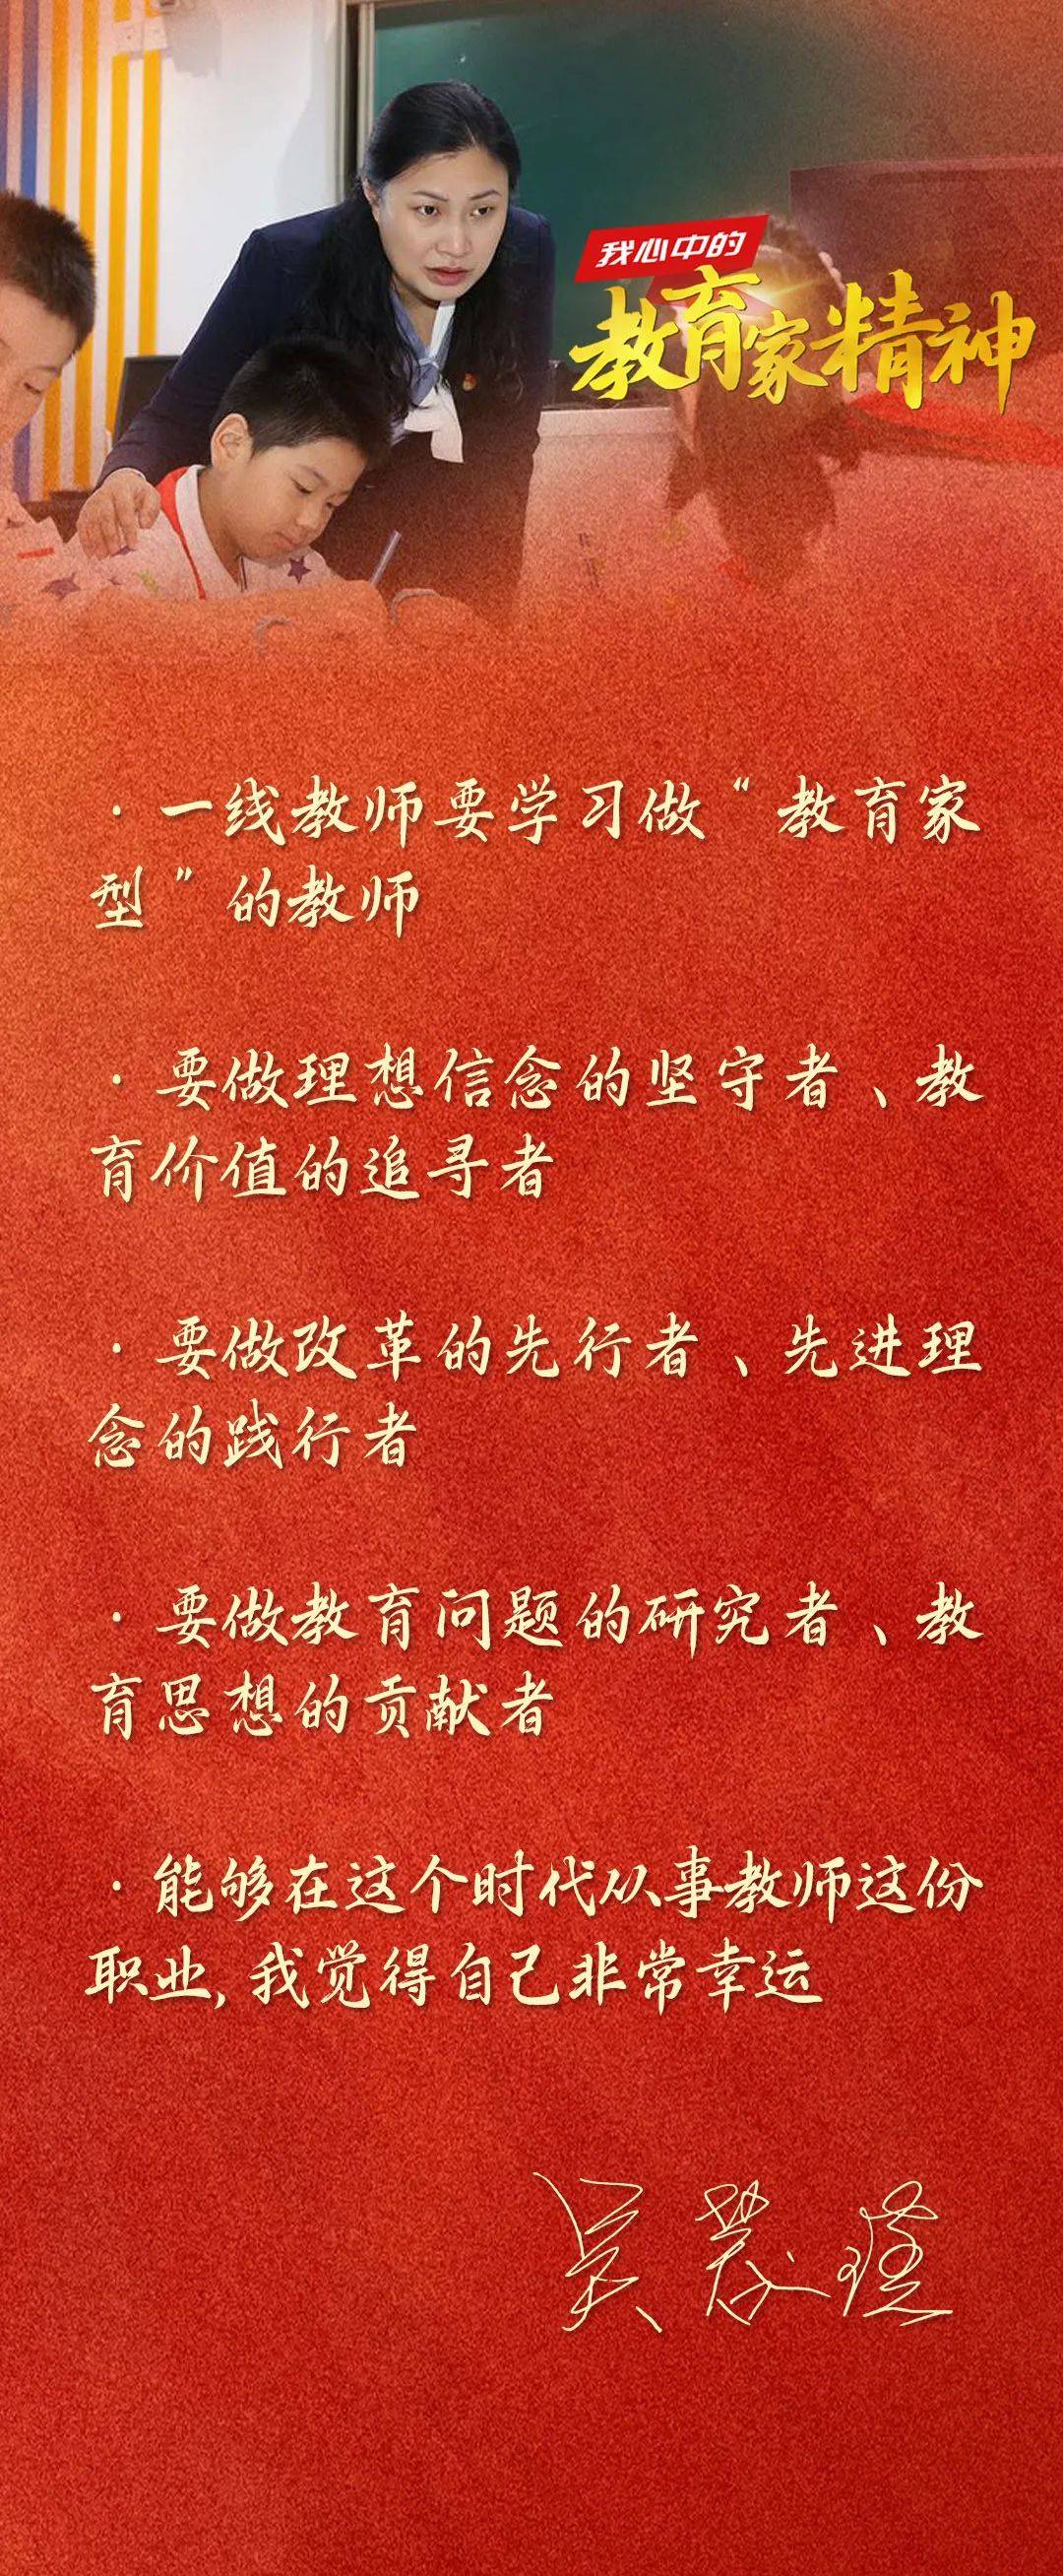 我心中的
教育家精神
· 一线教师要学习做“教育家
型”的教师
· 要做理想信念的坚守者、教
育价值的追寻者
· 要做改革的先行者、先进理
念的践行者
· 要做教育问题的研究者、教
育思想的贡献者
· 能够在这个时代从事教师这份
职业,我觉得自己非常幸运